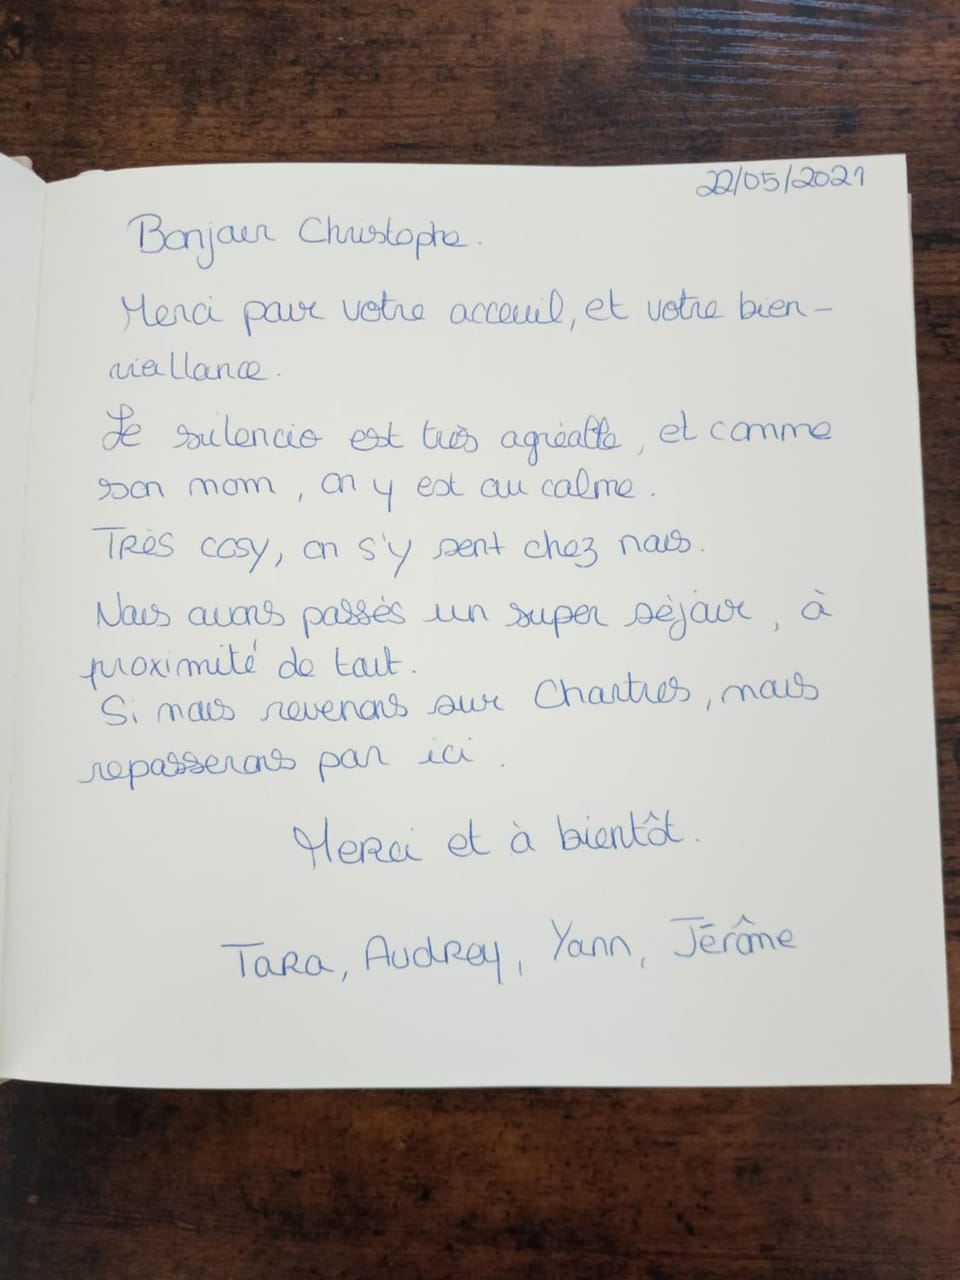 22/05/2021
Bonjour Christophe.
Merci pour votre acceuil, et votre bien-
veillance.
Le silencio est très agréable, et comme
son nom, on y est au calme.
Très cosy, on s'y sent chez nous.
Nous avons passés un super séjour, à
proximité de tout.
Si nous revenons sur Chartres, nous
repasserons par ici.
Merci et à bientôt.
Tara, Audrey, Yann, Jérôme